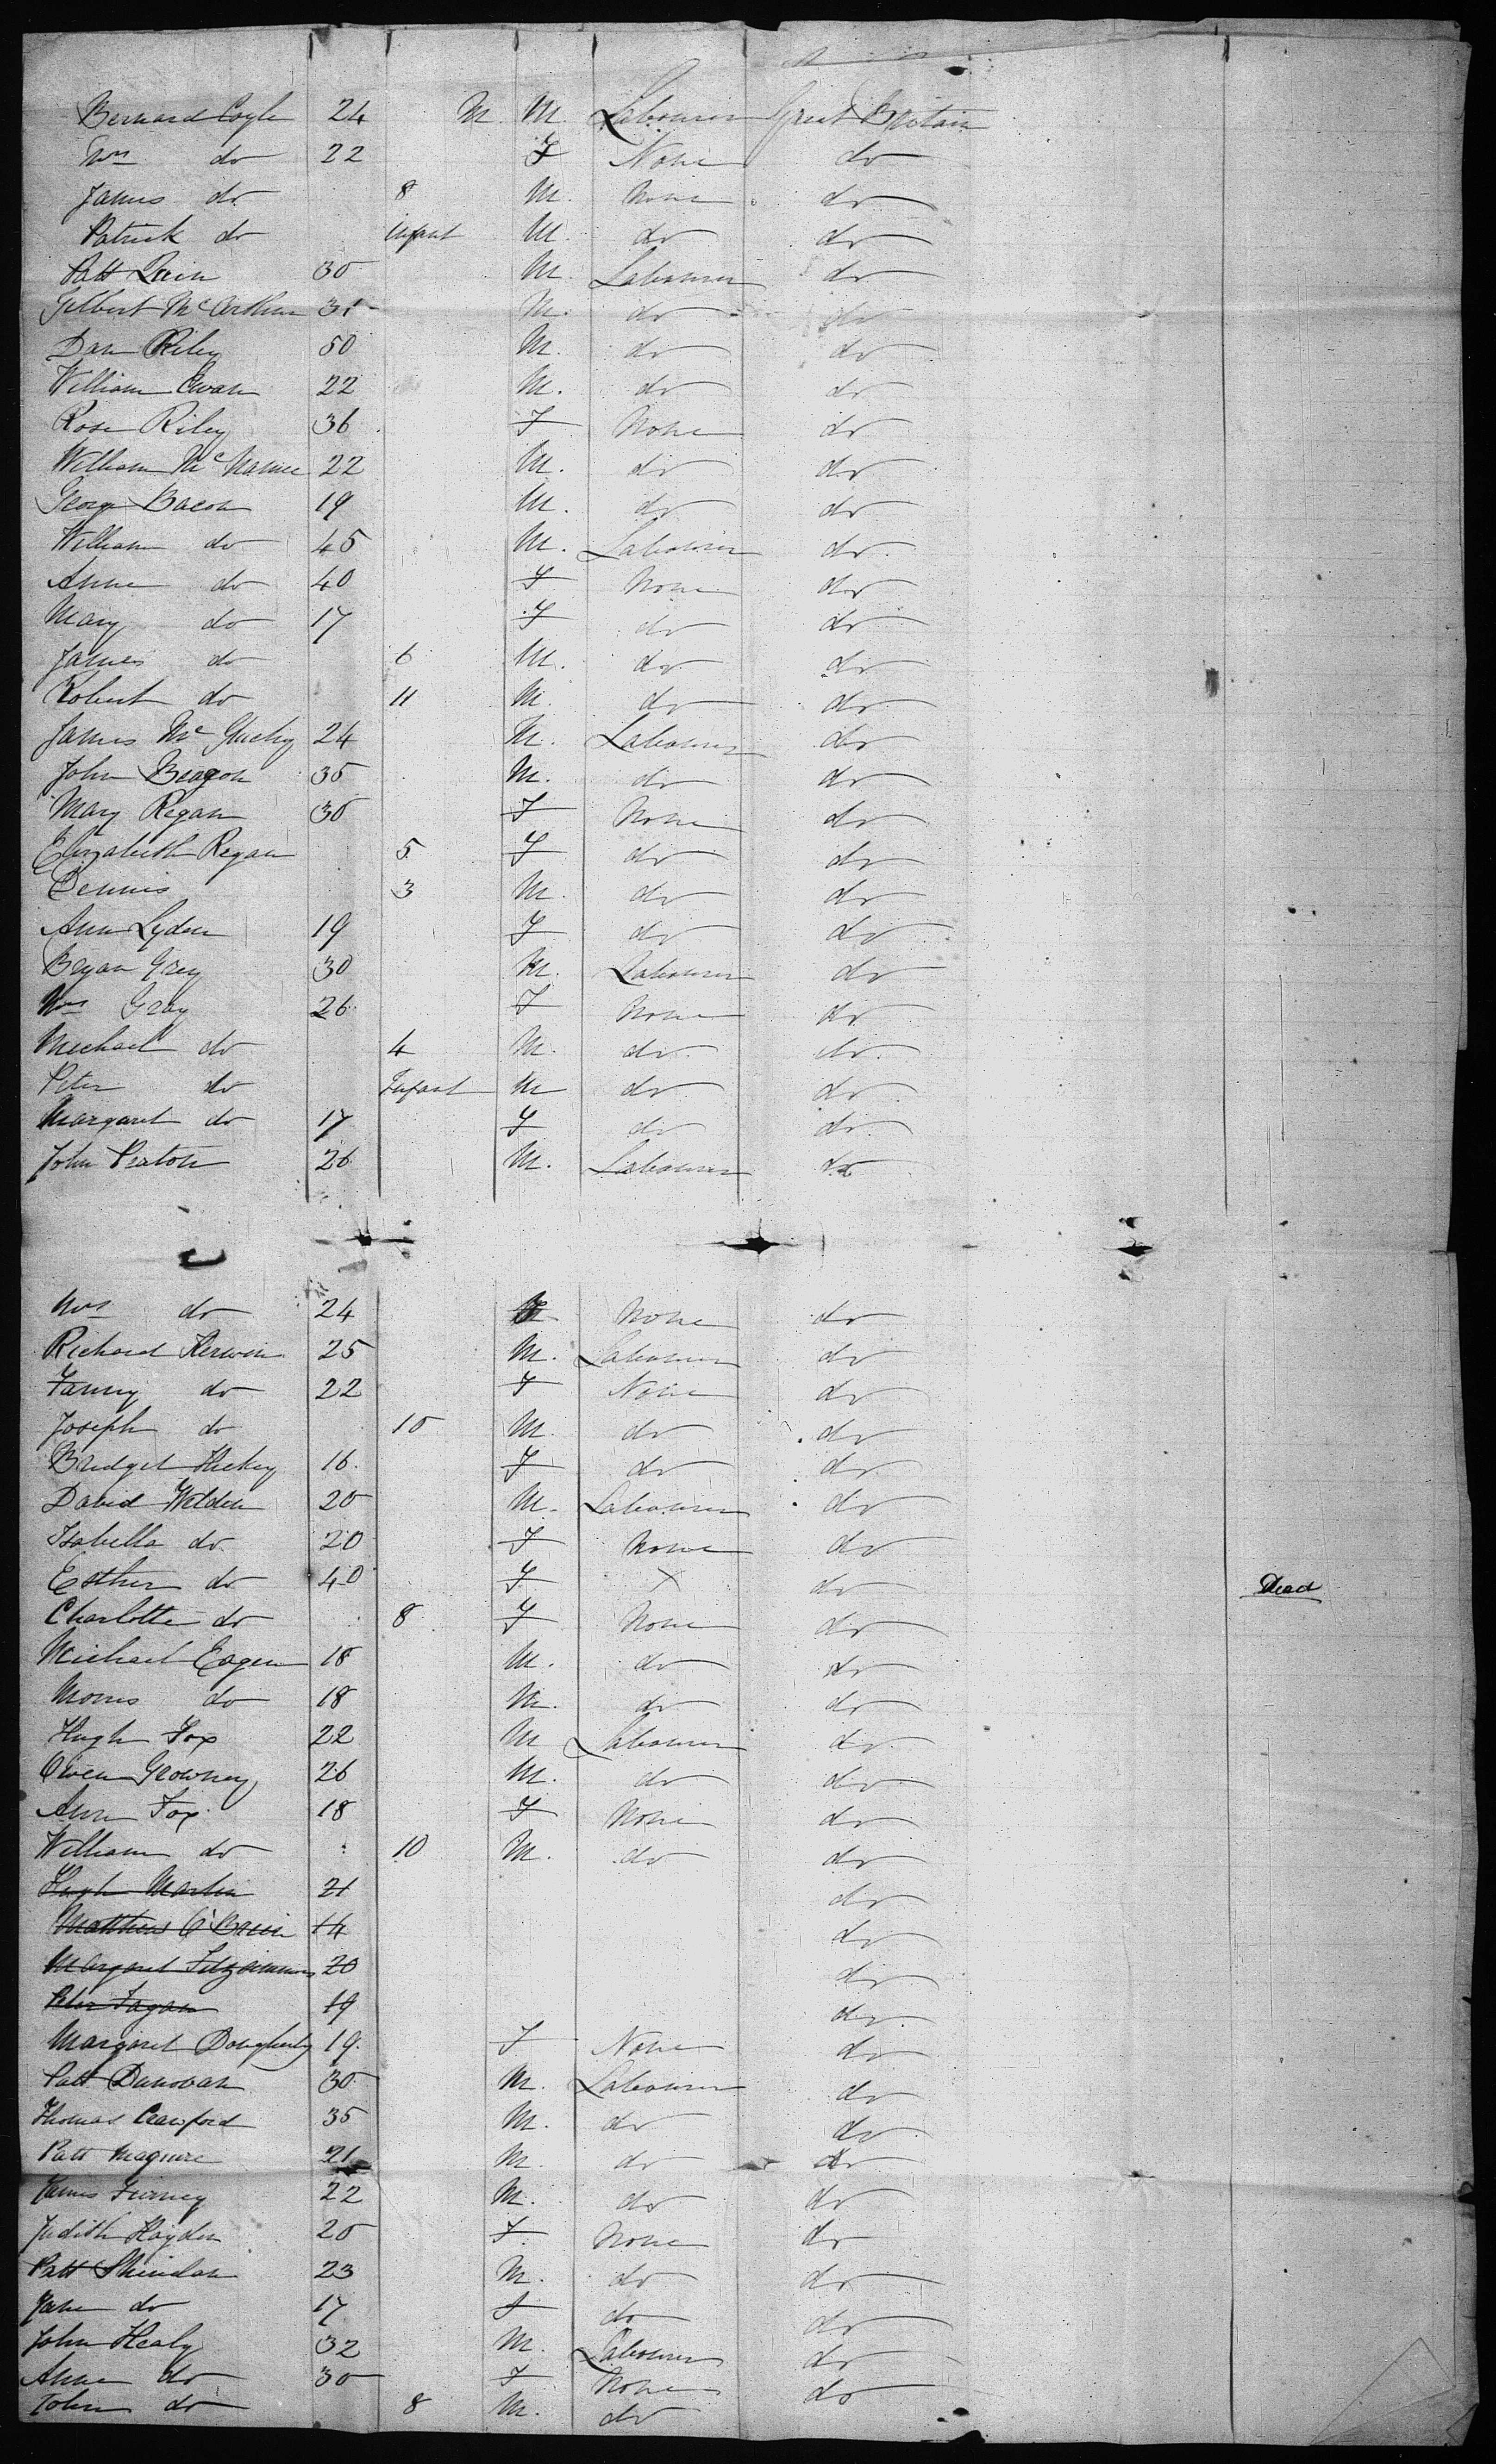 Bernard Coyle 24 M. M. Labourer Great Britain
Mrs do 22 F None do
James do 8 M. None do
Patrick do infant M. do do
Patt Quin 30 M. Labourer do
Gilbert McArthur 31 M. do do
Dan Riley 50 M. do do
William Ewan 22 M. do do
Rose Riley 36 F None do
William McNamee 22 M. do do
George Bacon 19 M. do do
William do 45 M. Labourer do
Anne do 40 F None do
Mary do 17 F do do
James do 6 M. do do
Robert do 11 M. do do
James Mc 24 M. Labourer do
John 35 M. do do
Mary Regan 30 F None do
Elizabeth Regan 5 F do do
Dennis 3 M. do do
Ann Lyden 19 F do do
Bryan Grey 30 M. Labourer do
Mrs Gray 26 F None do
Michael do 4 M. do do
Peter do Infant M do do
Margaret do 17 F do do
John 26 M. Labourer do
Mrs do 24 F None do
Richard Kerwin 25 M. Labourer do
Fanny do 22 F None do
Joseph do 10 M. do do
Bridget Hickey 16 F do do
David Welden 20 M. Labourer do
Isabella do 20 F None do
Esther do 40 F X do Dead
Charlotte do 8 F None do
Michael Eagen 18 M. do do
Morris do 18 M. do do
Hugh Fox 22 M Labourer do
Owen Growney 26 M. do do
Ann Fox 18 F None do
William do 10 M. do do
Hugh Martin 21 do
Matthew O'Brien 14 do
Margaret Fitzsimmons 20 do
Peter Fagan 19 do
Margaret Dougherty 19 F None do
Patt Donovan 30 M. Labourer do
Thomas Crawford 35 M. do do
Patt Maguire 21 M. do do
James Furney 22 M. do do
Judith Hayden 20 F. None do
Patt Sheridan 23 M. do do
Jane do 17 F do do
John Healy 32 M. Labourer do
Anne do 30 F None do
John do 8 M. do